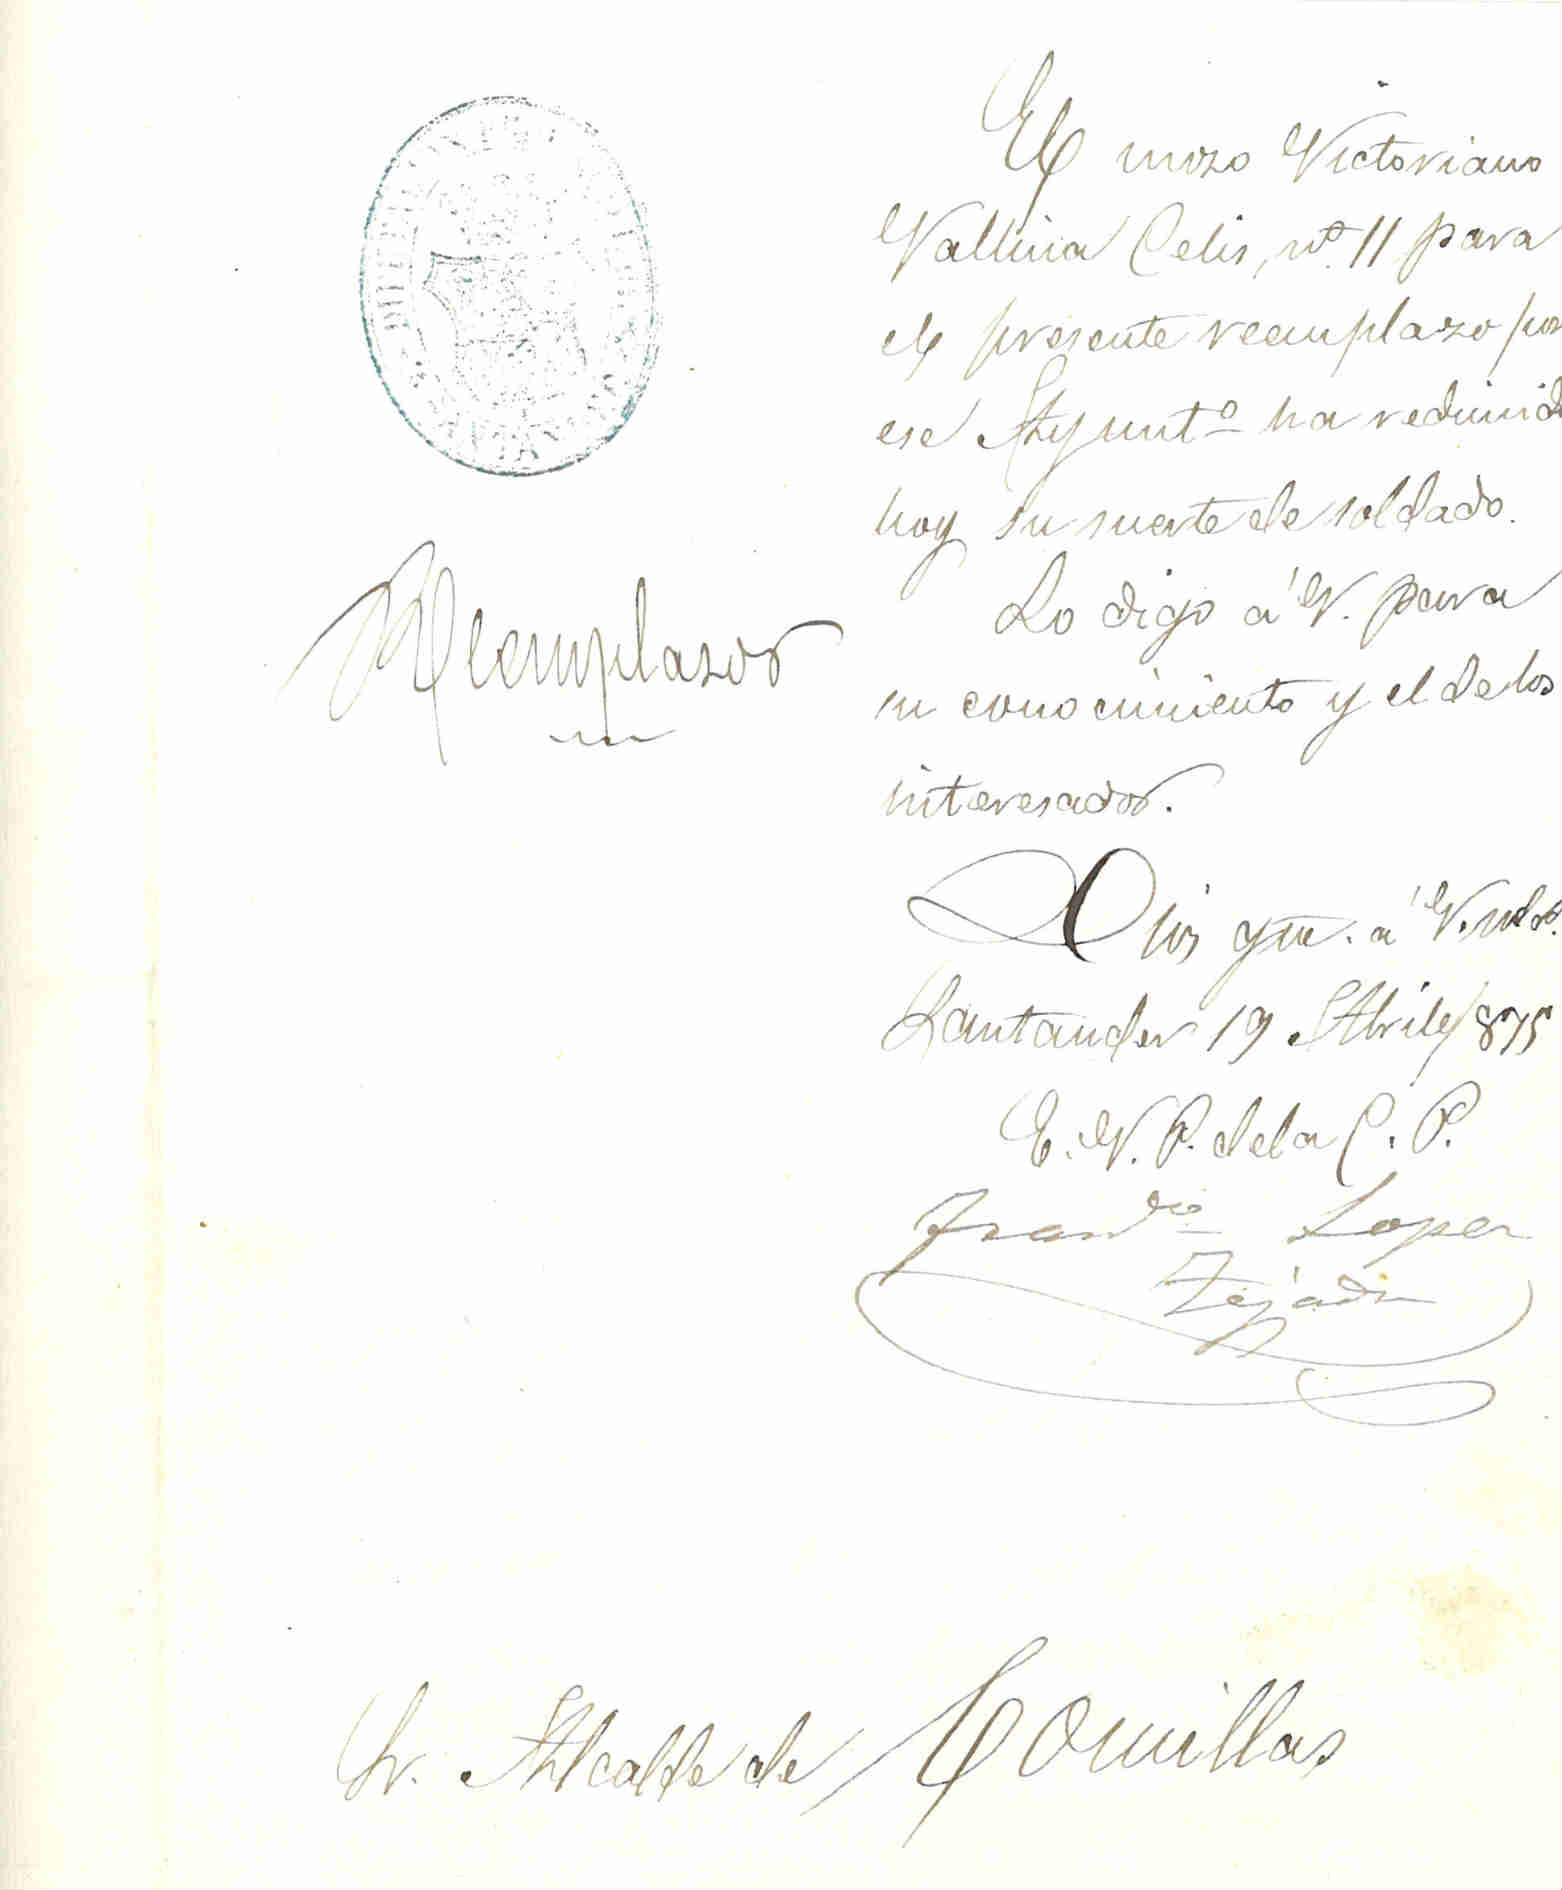 El mozo Victoriano
Vallina Celis, nº 11 para
el presente reemplazo por
ese Ayuntº ha redimid
hoy su suerte de soldado.
Reemplazos
Lo digo á V. para
su conocimiento y el de los
interesados.
Dios gue. á V. ms. as.
Santander 19 Abril/875
E. V. P. de la C. P.
Lopez
Tejada
Sr. Alcalde de Comillas